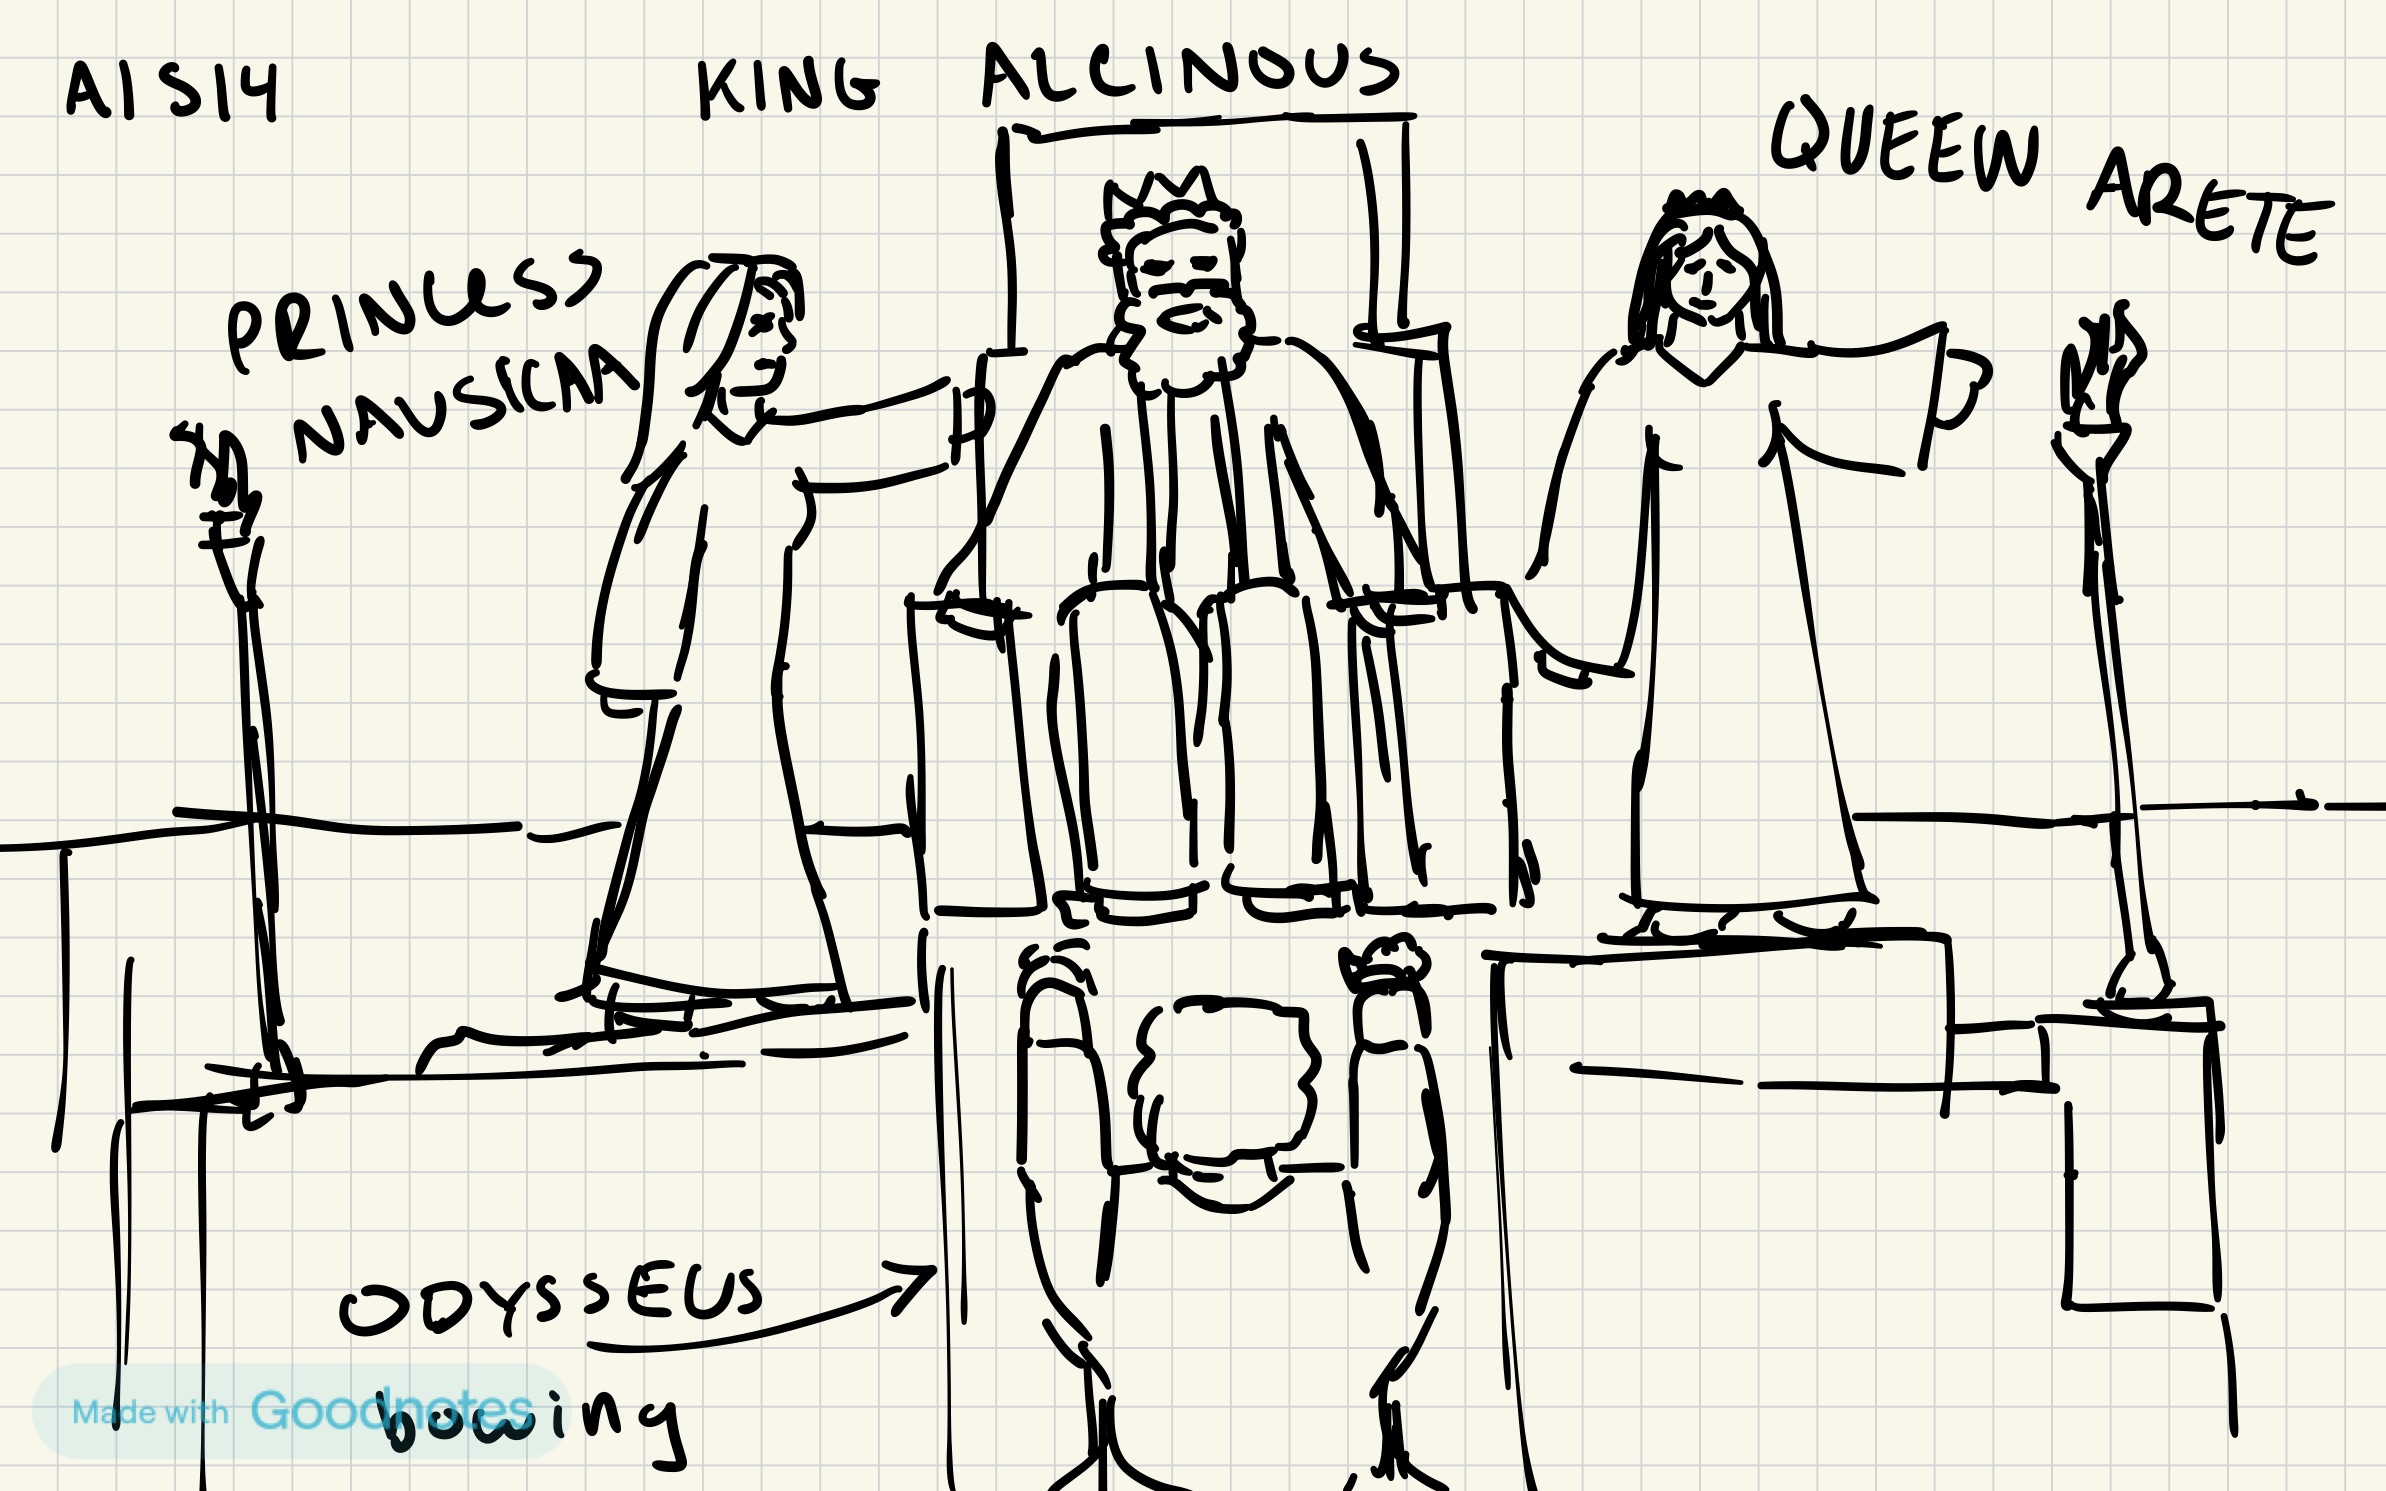 A1S14
KING ALCINOUS
QUEEN ARETE
PRINCESS
NAUSICAA
ODYSSEUS
bowing
Made with Goodnotes